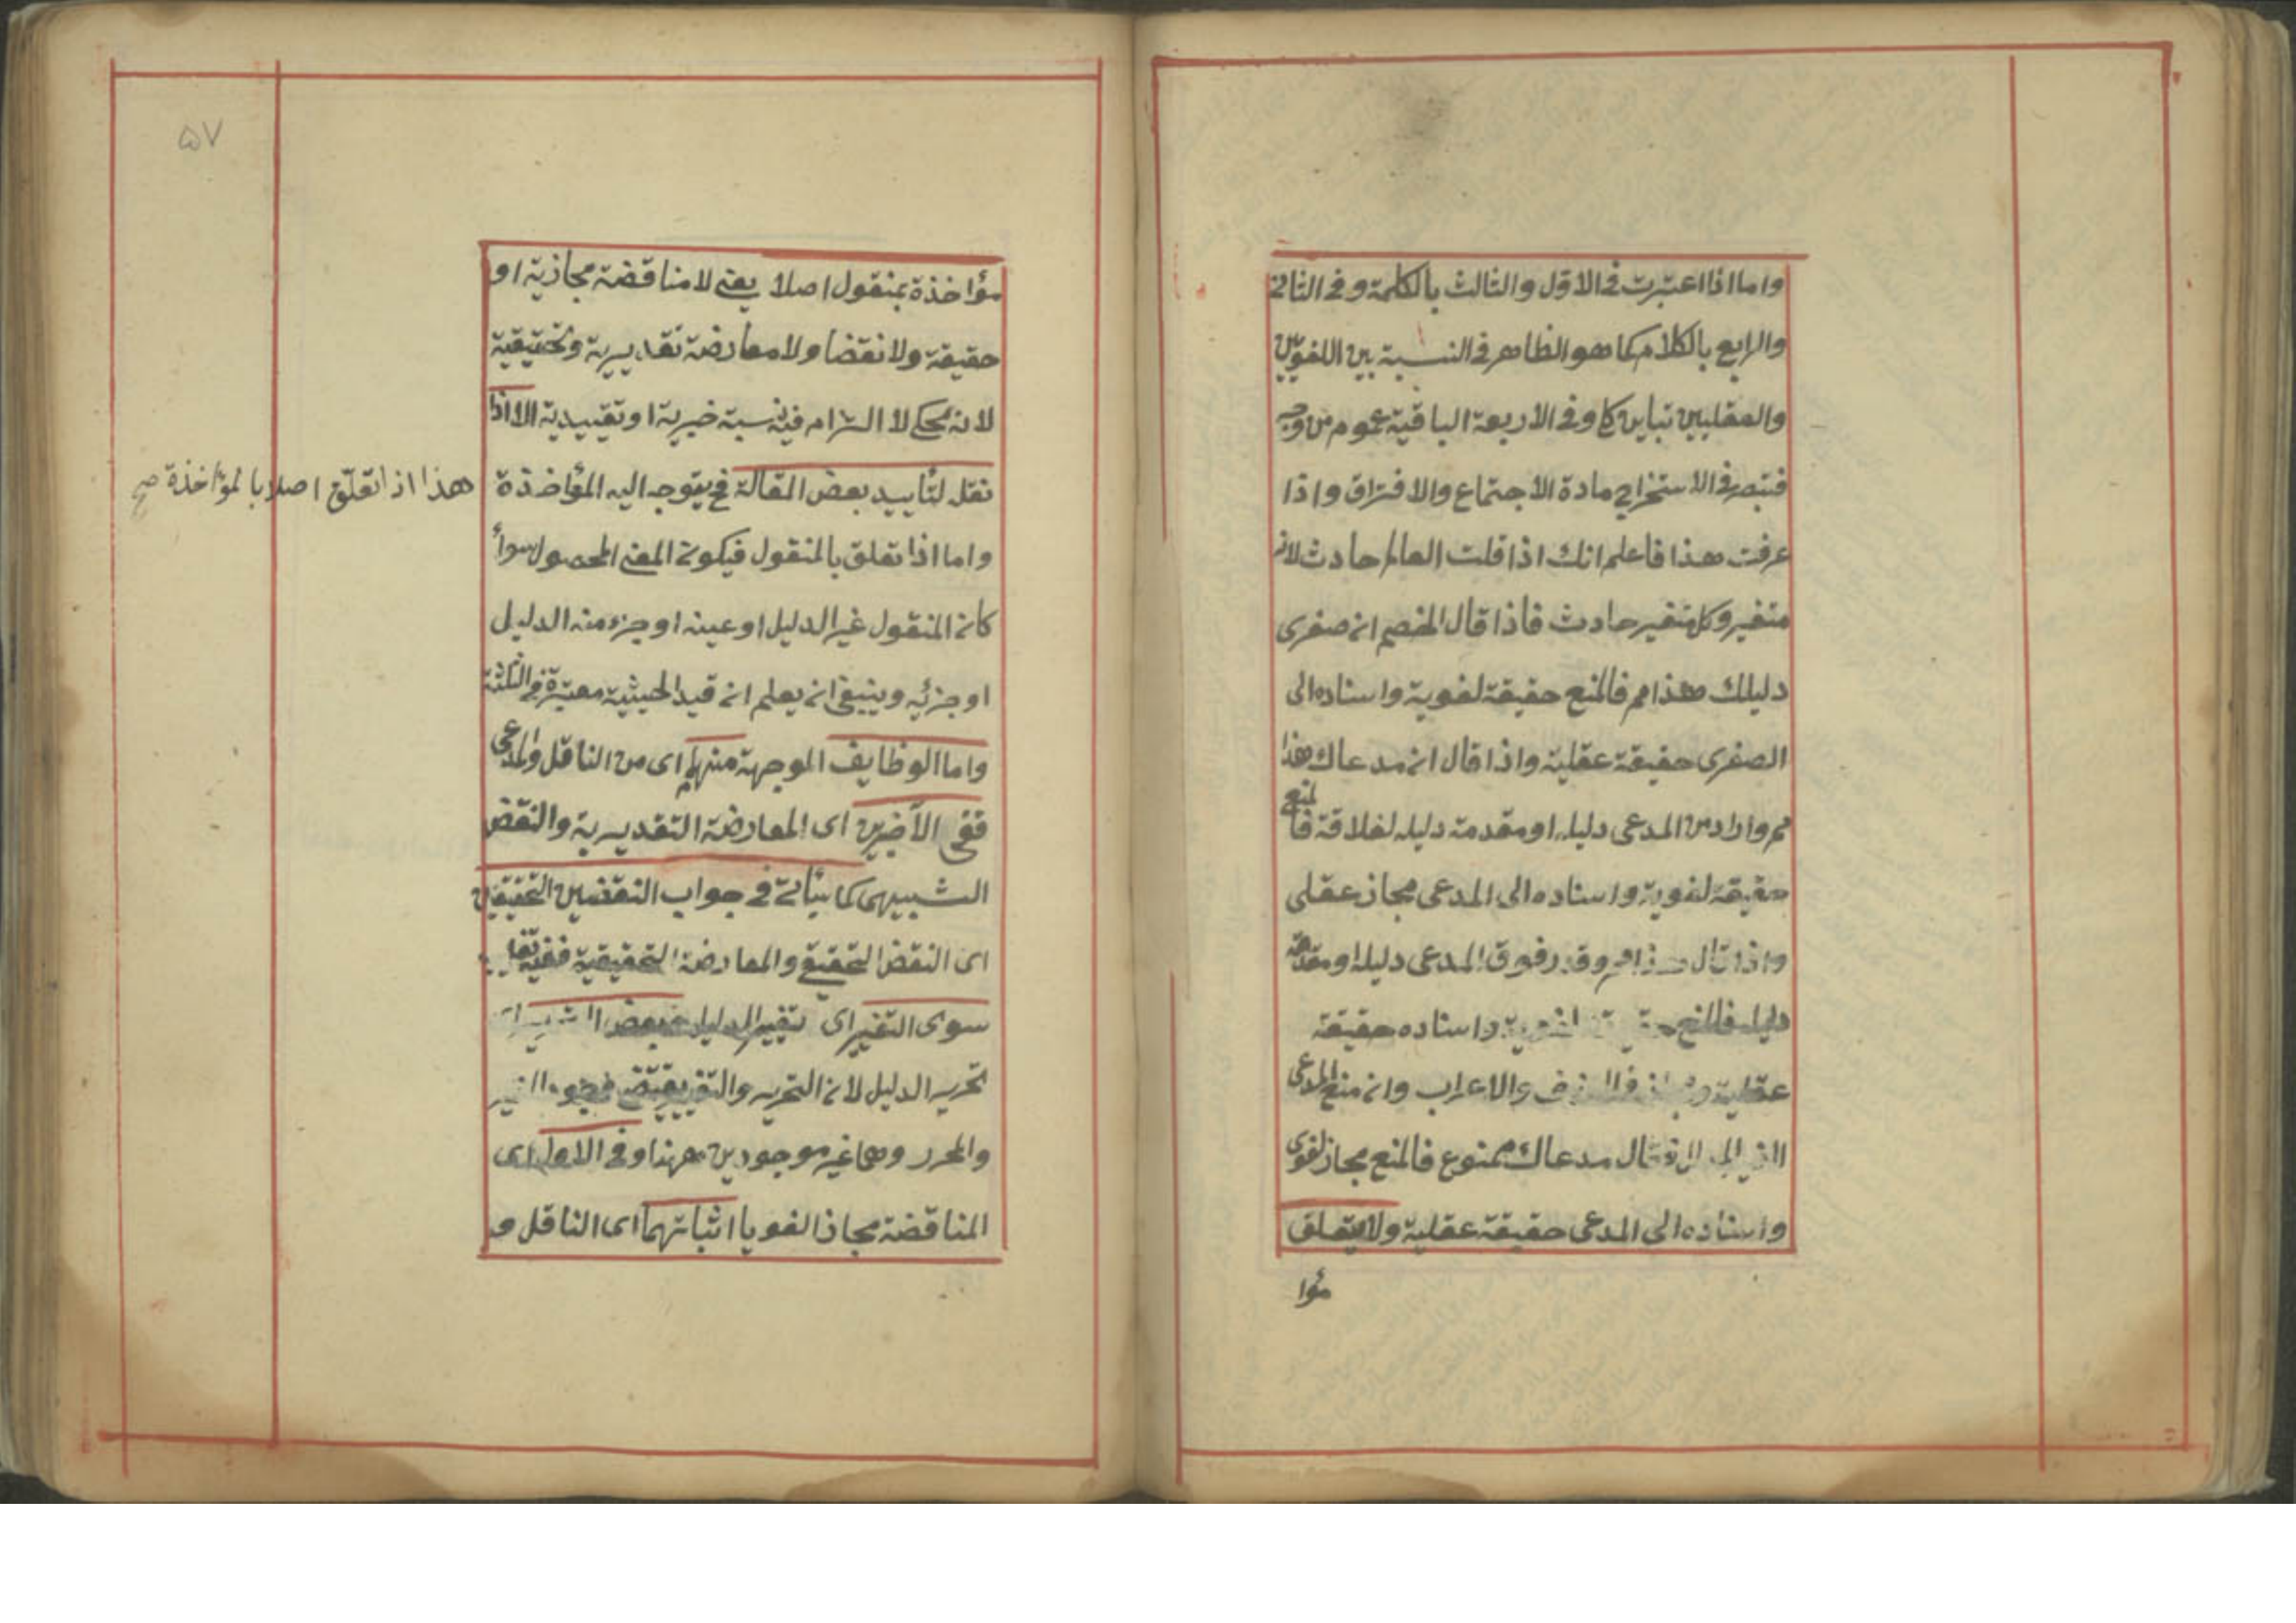 واما اذا اعتبرت فى الاول والثالث بالكلمة وفى الثانى
والرابع بالكلام كما هو الظاهر فى النسبة بين اللغويين
والعقليين تباين كلى وفى الاربعة الباقية عموم من وجه
فتبصر فى الاستخراج مادة الاجتماع والافتراق واذا
عرفت هذا فاعلم انك اذا قلت العالم حادث لانه
متغير وكل متغير حادث فاذا قال الخصم ان صغرى
دليلك هذا مم فالمنع حقيقة لغوية واسناده الى
الصغرى حقيقة عقلية واذا قال ان مدعاك هذا
مم واراد من المدعى دليله او مقدمة دليله لعلاقة فالمنع
حقيقة لغوية واسناده الى المدعى مجاز عقلى
واذا قال هذا مم وقدر فوق المدعى دليله او مقدمة
دليله فالمنع حقيقة لغوية واسناده حقيقة
عقلية والاعراب وان منع المدعى
مدعاك ممنوع فالمنع مجاز لغوى
واسناده الى المدعى حقيقة عقلية ولا يتعلق
مؤا
۵۷
مؤاخذة بمنقول اصلا يعنى لا مناقضة مجازية او
حقيقة ولا نقضا ولا معارضة تقديرية وتحقيقية
لانه محكى لا التزام فيه نسبة خبرية او تقييدية الا اذا
نقل لتأييد بعض المقالة فح يتوجه اليه المؤاخذة
هذا اذا تعلق اصلا بالمؤاخذة صح
واما اذا تعلق بالمنقول فيكون المعنى المحصول سواء
كان المنقول غير الدليل او عينه او جزء منه الدليل
او جزئه وينبغى ان يعلم ان قيد الحيثية معتبرة فى الثلثة
واما الوظايف الموجهة منهم اى من الناقل والمدعى
ففى الآخرين اى المعارضة التقديرية والنقض
الشبيهى كما سيأتى فى جواب النقضين التحقيقين
اى النقض التحقيقى والمعارضة التحقيقية ففيه
سوى التغير اى تغيير الدليل بعض
تحرير الدليل لان التحرير والتغيير يقتضى
والمحرر وهما غير موجودين ههنا وفى الاول اى
المناقضة مجازا لغويا اثباتهما اى الناقل و